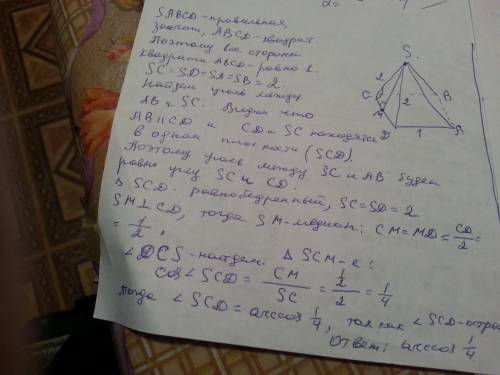 2=
SABCD - правильная,
значит, ABCD - квадрат.
Поэтому все стороны
квадрата ABCD - равно 1.
SC = SD = SA = SB = 2.
Найдем угол между
AB и SC. Видим что
AB || CD и CD и SC находятся
в одной плоскости (SCD).
Поэтому угол между SC и AB будет
равно углу SC и CD.
Δ SCD - равнобедренный, SC = SD = 2
SM ⊥ CD, тогда SM - медиан: CM = MD = CD/2 =
= 1/2,
∠DCS - найдем. Δ SCM - е:
cos∠SCD = CM/SC = 1/2/2 = 1/4
тогда ∠SCD = arccos 1/4, так как ∠SCD - остры
Ответ: arccos 1/4
S
2
2
C
B
D
1